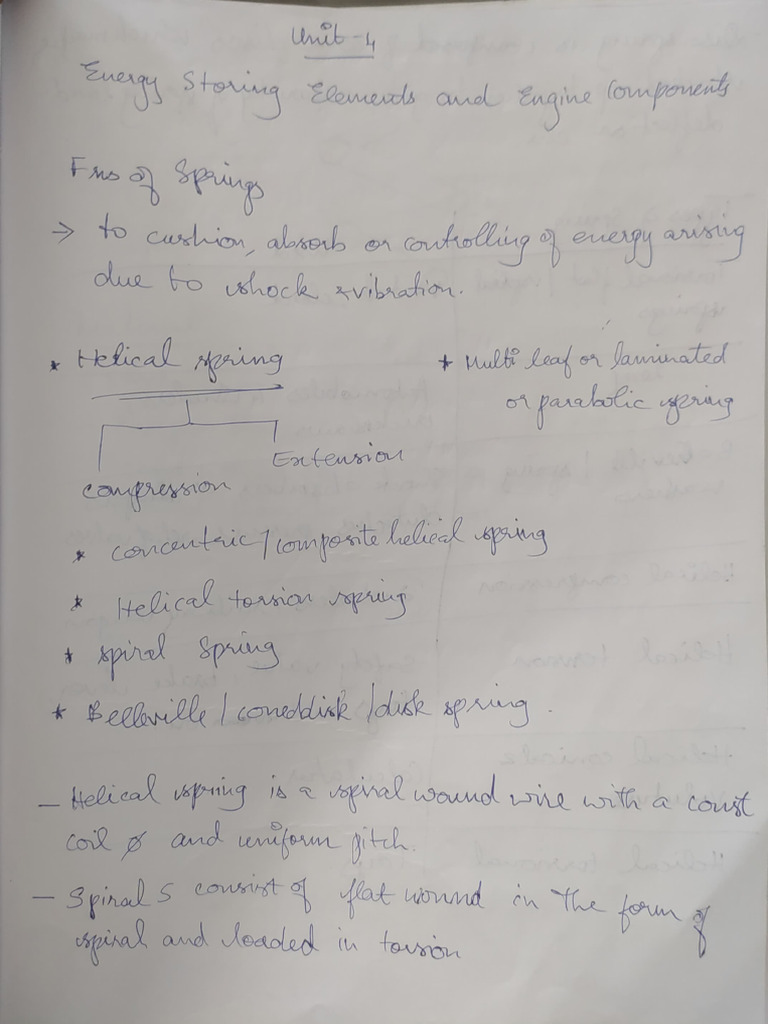 Unit - 4
Energy Storing Elements and Engine Components
Fns of Springs
→ to cushion, absorb or controlling of energy arising
due to shock & vibration.
* Helical spring
* Multi leaf or laminated
or parabolic spring
Extension
compression
* concentric / composite helical spring
* Helical torsion spring
* spiral Spring
* Belleville / coneddisk / disk spring.
- Helical spring is a spiral wound wire with a const
coil ø and uniform pitch.
- Spiral S consist of flat wound in the form of
spiral and loaded in torsion